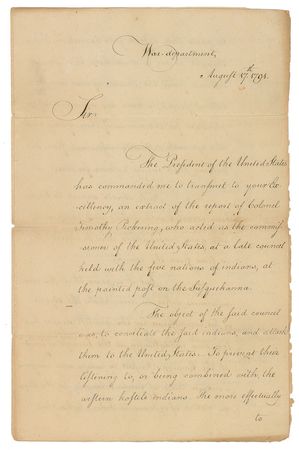 War department,
August 17th 1791.
Sir.
The President of the United States
has commanded me to transmit to your Ex
cellency, an extract of the report of Colonel
Timothy Pickering, who acted as the commis
sioner of the United States, at a late council
held with the five nations of indians, at
the painted post on the Susquehanna.
The object of the said council
was, to conciliate the said indians, and attach
them to the United States. To prevent their
listening to, or being combined with, the
western hostile Indians. The more effectually
to